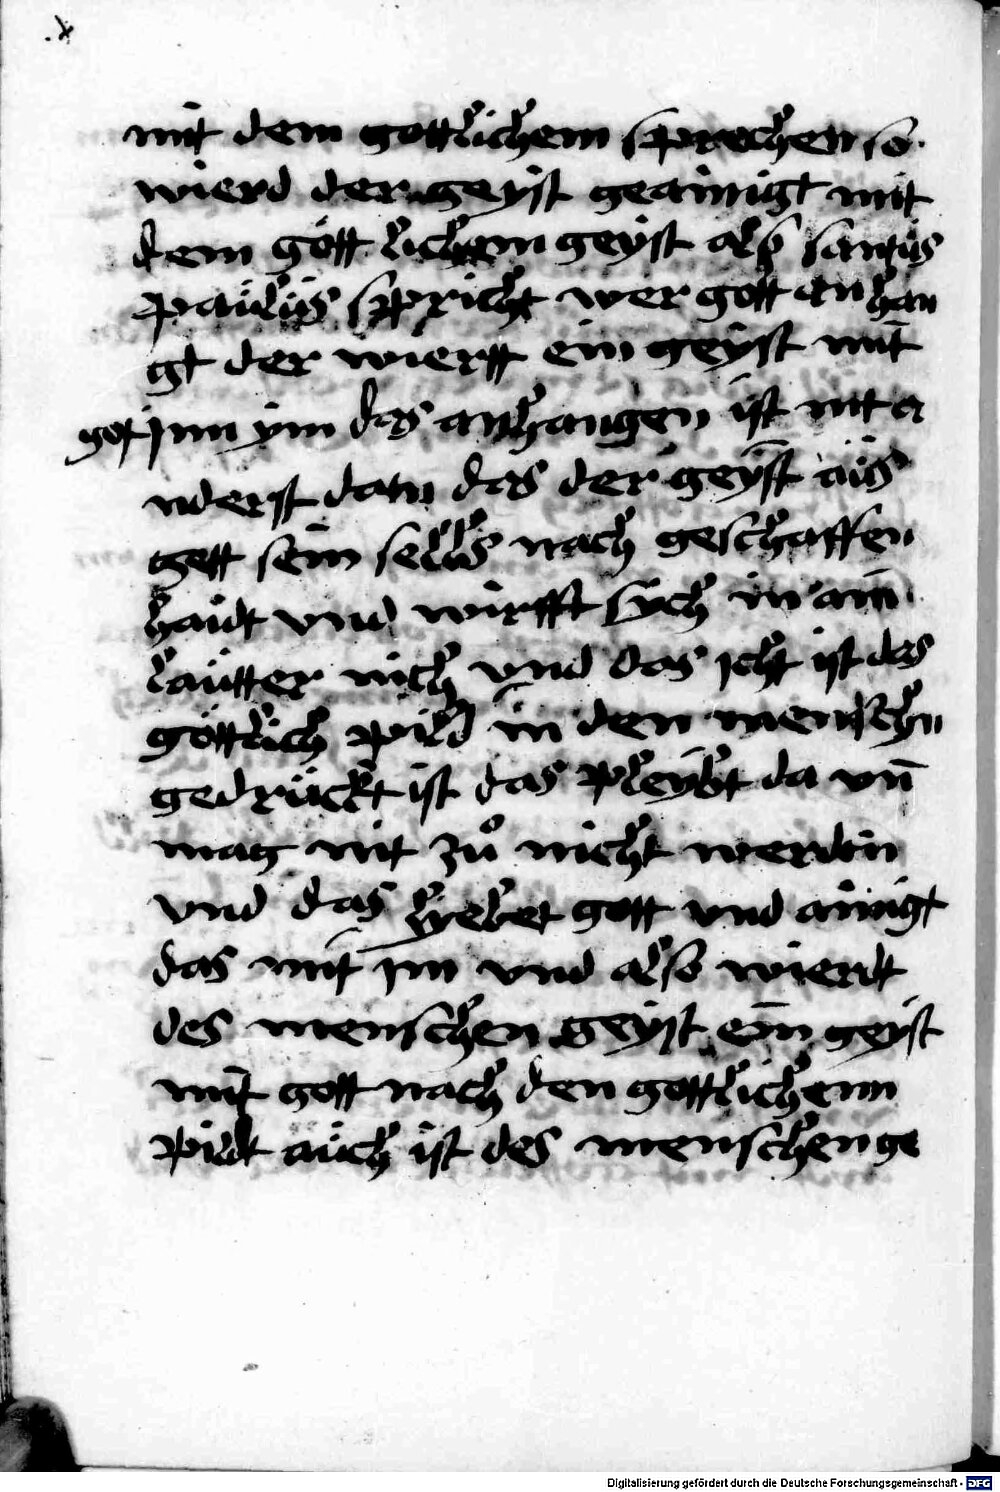 .x
mit dem gottlichem sprechen so
wierd der geyst geainigt mit
dem gött lichem geyst als santüs
paülüs spricht wer gott an han
gt der wierft ein geyst mit
got jnn ym das anhangen ist nit a
nderst dann das der geyst aüs
gett sein selbs nach geschaffen
haidt vnd wirfft sych in ain
laütter nich vnd das jcht ist des
göttlich pild in den menschn
gedrückt ist das pleybt da vn̄
mag nit zů nicht werden
vnd das lyebet gott vnd ainigt
das mit jm vnd also wierdt
des menschen geyst ein geyst
mit gott nach den gottlichenn
pildt aüch ist des menschen ge
Digitalisierung gefördert durch die Deutsche Forschungsgemeinschaft - DFG